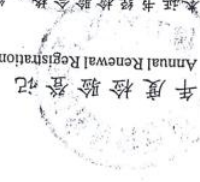 年度检验登记
Annual Renewal Registration
本证书经检验合格